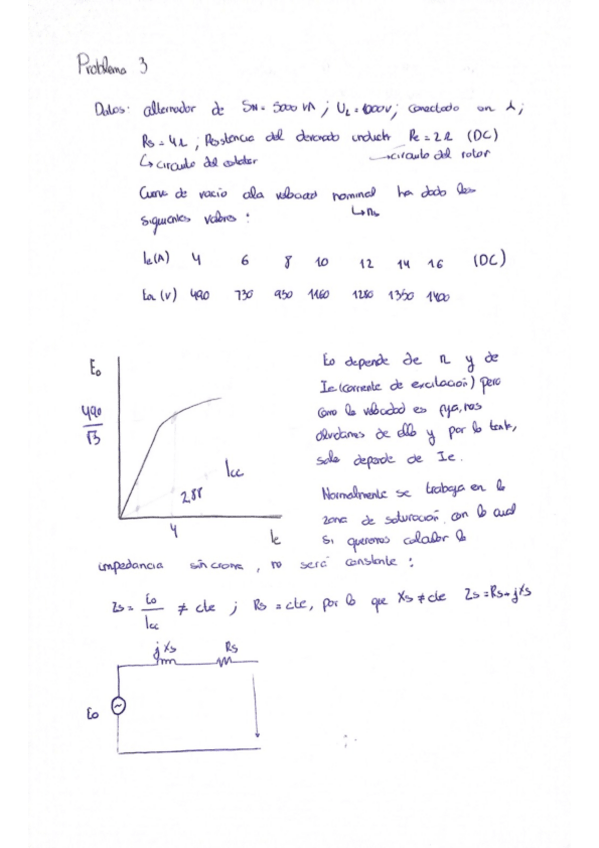 Problema 3
Datos: alternador de SN = 5000 VA ; UL = 1000V ; conectado en λ ;
Rs = 4Ω ; Resistencia del devanado inductor Re = 2Ω (DC)
↳ circuito del estator → circuito del rotor
Curva de vacío a la velocidad nominal ha dado los
↳ ns
siguientes valores :
Ie(A) 4 6 8 10 12 14 16 (DC)
EOL (V) 490 735 950 1160 1280 1350 1400
Eo
490
√3
Icc
2.88
4
Ie
Eo depende de n y de
Ie (corriente de excitación) pero
como la velocidad es fija, nos
olvidamos de ello y por lo tanto,
solo depende de Ie.
Normalmente se trabaja en la
zona de saturación, con lo cual
si queremos calcular la
impedancia síncrona, no será constante :
Zs = Eo/Icc ≠ cte ; Rs = cte, por lo que Xs ≠ cte Zs = Rs + jXs
jXs Rs
Eo